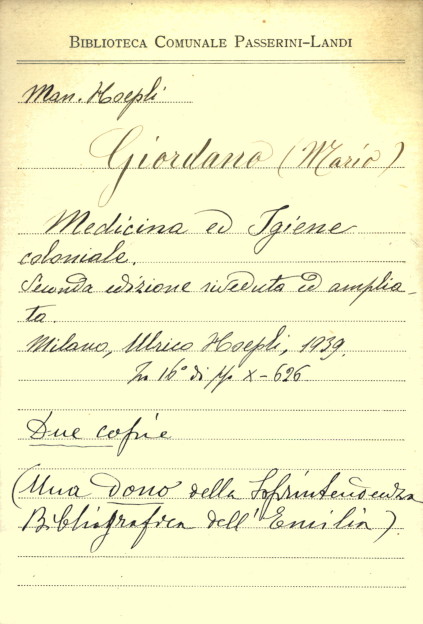 BIBLIOTECA COMUNALE PASSERINI-LANDI
Man. Hoepli
Giordano (Mario)
Medicina ed Igiene
coloniale.
Seconda edizione riveduta ed amplia-
ta.
Milano, Ulrico Hoepli, 1939.
In 16° di pp X-626
Due copie
(Una dono della Soprintendenza
Bibliografica dell'Emilia).